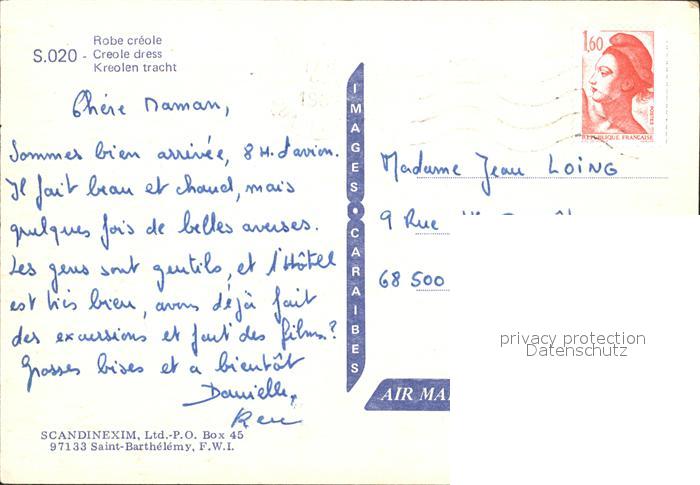 Robe créole
S.020 - Creole dress
Kreolen tracht
Chère Maman,
Sommes bien arrivée, 8 H. d'avion.
Il fait beau et chaud, mais
quelques fois de belles averses.
Les gens sont gentils, et l'Hôtel
est très bien, avons déjà fait
des excursions et fait des films?
Grosses bises et a bientôt
Danielle,
SCANDINEXIM, Ltd.-P.O. Box 45
97133 Saint-Barthélémy, F.W.I.
IMAGES • CARAIBES
AIR MA
1,60
POSTES
REPUBLIQUE FRANÇAISE
Madame Jean LOING
9 Rue
68 500
privacy protection
Datenschutz